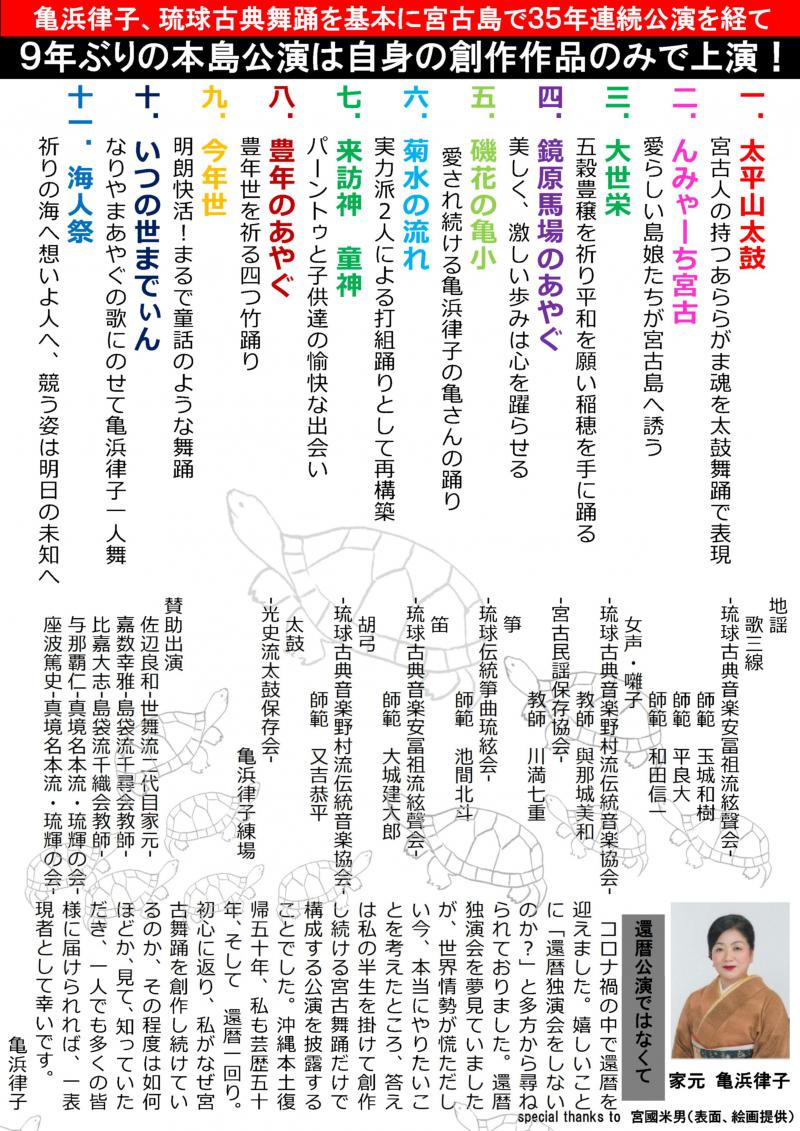 亀浜律子、琉球古典舞踊を基本に宮古島で35年連続公演を経て
9年ぶりの本島公演は自身の創作作品のみで上演！
一．太平山太鼓
宮古人の持つあららがま魂を太鼓舞踊で表現
二．んみゃーち宮古
愛らしい島娘たちが宮古島へ誘う
三．大世栄
五穀豊穣を祈り平和を願い稲穂を手に踊る
四．鏡原馬場のあやぐ
美しく、激しい歩みは心を躍らせる
五．磯花の亀小
愛され続ける亀浜律子の亀さんの踊り
六．菊水の流れ
実力派２人による打組踊りとして再構築
七．来訪神　童神
パーントゥと子供達の愉快な出会い
八．豊年のあやぐ
豊年世を祈る四つ竹踊り
九．今年世
明朗快活！まるで童話のような舞踊
十．いつの世までぃん
なりやまあやぐの歌にのせて亀浜律子一人舞
十一．海人祭
祈りの海へ想いよ人へ、競う姿は明日の未知へ
地謡
歌三線
-琉球古典音楽安冨祖流絃聲会-
師範　玉城和樹
師範　平良大
師範　和田信一
女声・囃子
-琉球古典音楽野村流伝統音楽協会-
教師　與那城美和
-宮古民謡保存協会-
教師　川満七重
箏
-琉球伝統箏曲琉絃会-
師範　池間北斗
笛
-琉球古典音楽安冨祖流絃聲会-
師範　大城建大郎
胡弓
-琉球古典音楽野村流伝統音楽協会-
師範　又吉恭平
太鼓
-光史流太鼓保存会-
亀浜律子練場
賛助出演
佐辺良和-世舞流二代目家元-
嘉数幸雅-島袋流千尋会教師-
比嘉大志-島袋流千織会教師-
与那覇仁-真境名本流・琉輝の会-
座波篤史-真境名本流・琉輝の会-
家元　亀浜律子
還暦公演ではなくて
コロナ禍の中で還暦を
迎えました。嬉しいこと
に「還暦独演会をしない
のか？」と多方から尋ね
られておりました。還暦
独演会を夢見ていました
が、世界情勢が慌ただし
い今、本当にやりたいこ
とを考えたところ、答え
は私の半生を掛けて創作
し続ける宮古舞踊だけで
構成する公演を披露する
ことでした。沖縄本土復
帰五十年、私も芸歴五十
年、そして　還暦一回り。
初心に返り、私がなぜ宮
古舞踊を創作し続けてい
るのか、その程度は如何
ほどか、見て、知っていた
だき、一人でも多くの皆
様に届けられれば、一表
現者として幸いです。
亀浜律子
special thanks to　宮國米男（表面、絵画提供）